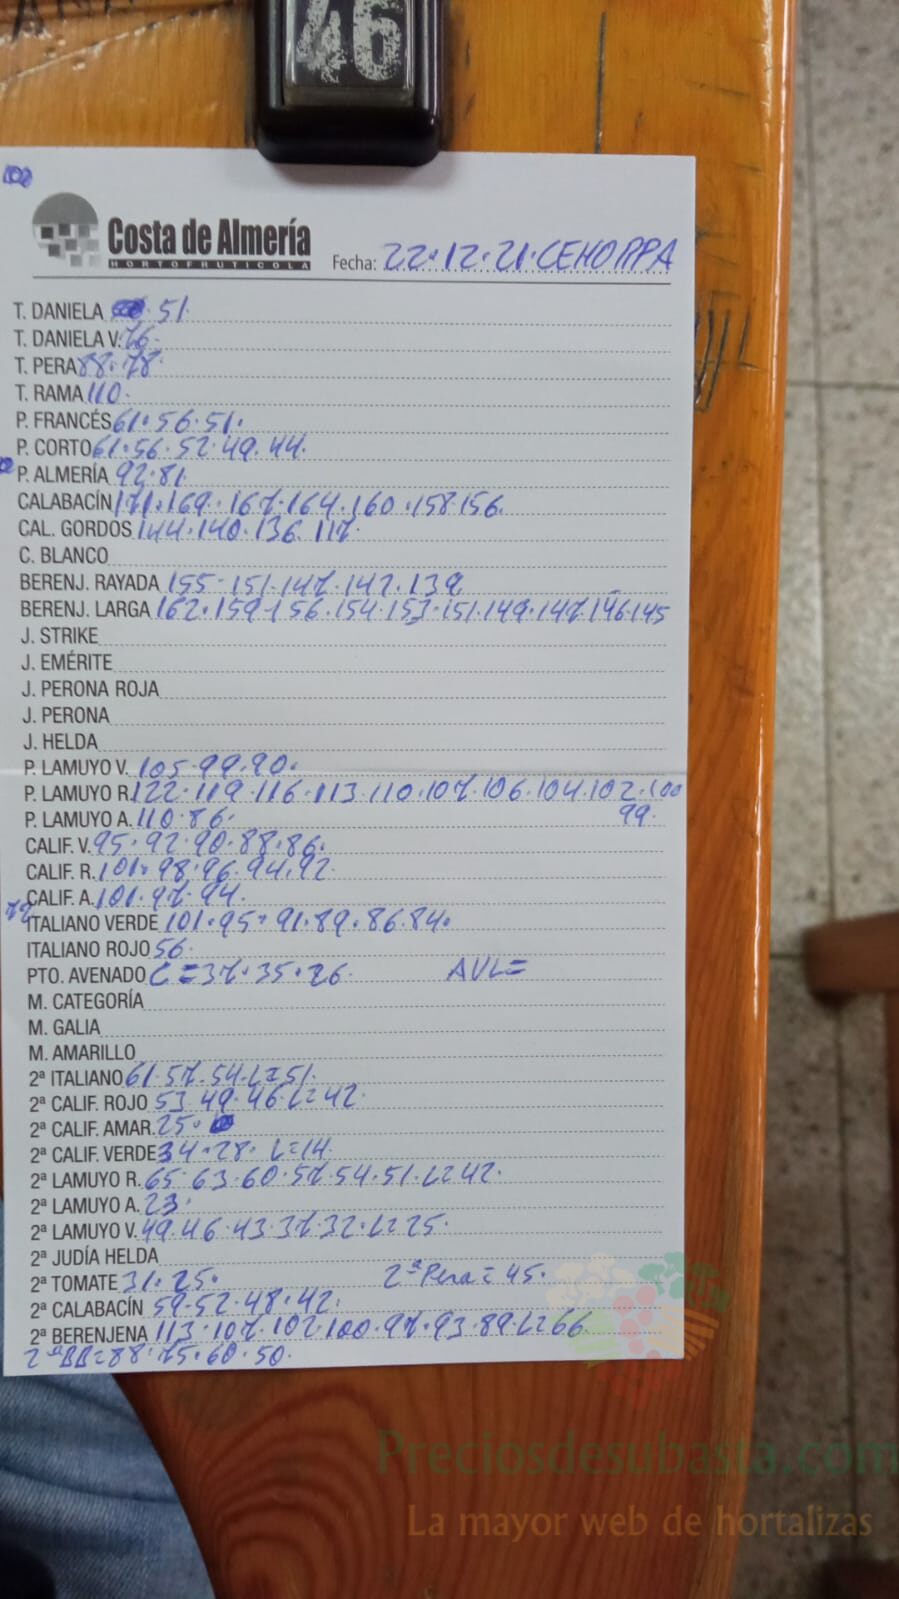 46
Costa de Almería
HORTOFRUTICOLA
Fecha: 22·12·21·CEHORPA
T. DANIELA 51·
T. DANIELA V. 76·
T. PERA 88·78
T. RAMA 110·
P. FRANCÉS 61·56·51·
P. CORTO 61·56·52·49·44·
P. ALMERÍA 92·81·
CALABACÍN 171·169·167·164·160·158·156·
CAL. GORDOS 144·140·136·117·
C. BLANCO
BERENJ. RAYADA 155·151·147·142·139
BERENJ. LARGA 162·159·156·154·153·151·149·147·146·145
J. STRIKE
J. EMÉRITE
J. PERONA ROJA
J. PERONA
J. HELDA
P. LAMUYO V. 105·99·90·
P. LAMUYO R. 122·119·116·113·110·107·106·104·102·100
99·
P. LAMUYO A. 110·86·
CALIF. V. 95·92·90·88·86·
CALIF. R. 101·98·96·94·92·
CALIF. A. 101·97·94·
ITALIANO VERDE 101·95·91·89·86·84·
ITALIANO ROJO 56·
PTO. AVENADO C=37·35·26 AVL=
M. CATEGORÍA
M. GALIA
M. AMARILLO
2ª ITALIANO 61·57·54·L=51·
2ª CALIF. ROJO 53·49·46·L=42·
2ª CALIF. AMAR. 25·
2ª CALIF. VERDE 34·28· L=14·
2ª LAMUYO R. 65·63·60·57·54·51·L=42·
2ª LAMUYO A. 23·
2ª LAMUYO V. 49·46·43·37·32·L=25·
2ª JUDÍA HELDA
2ª TOMATE 31·25· 2ªPera=45·
2ª CALABACÍN 59·52·48·42·
2ª BERENJENA 113·107·102·100·97·93·89·L=66·
88·75·60·50·
Preciosdesubasta.com
La mayor web de hortalizas